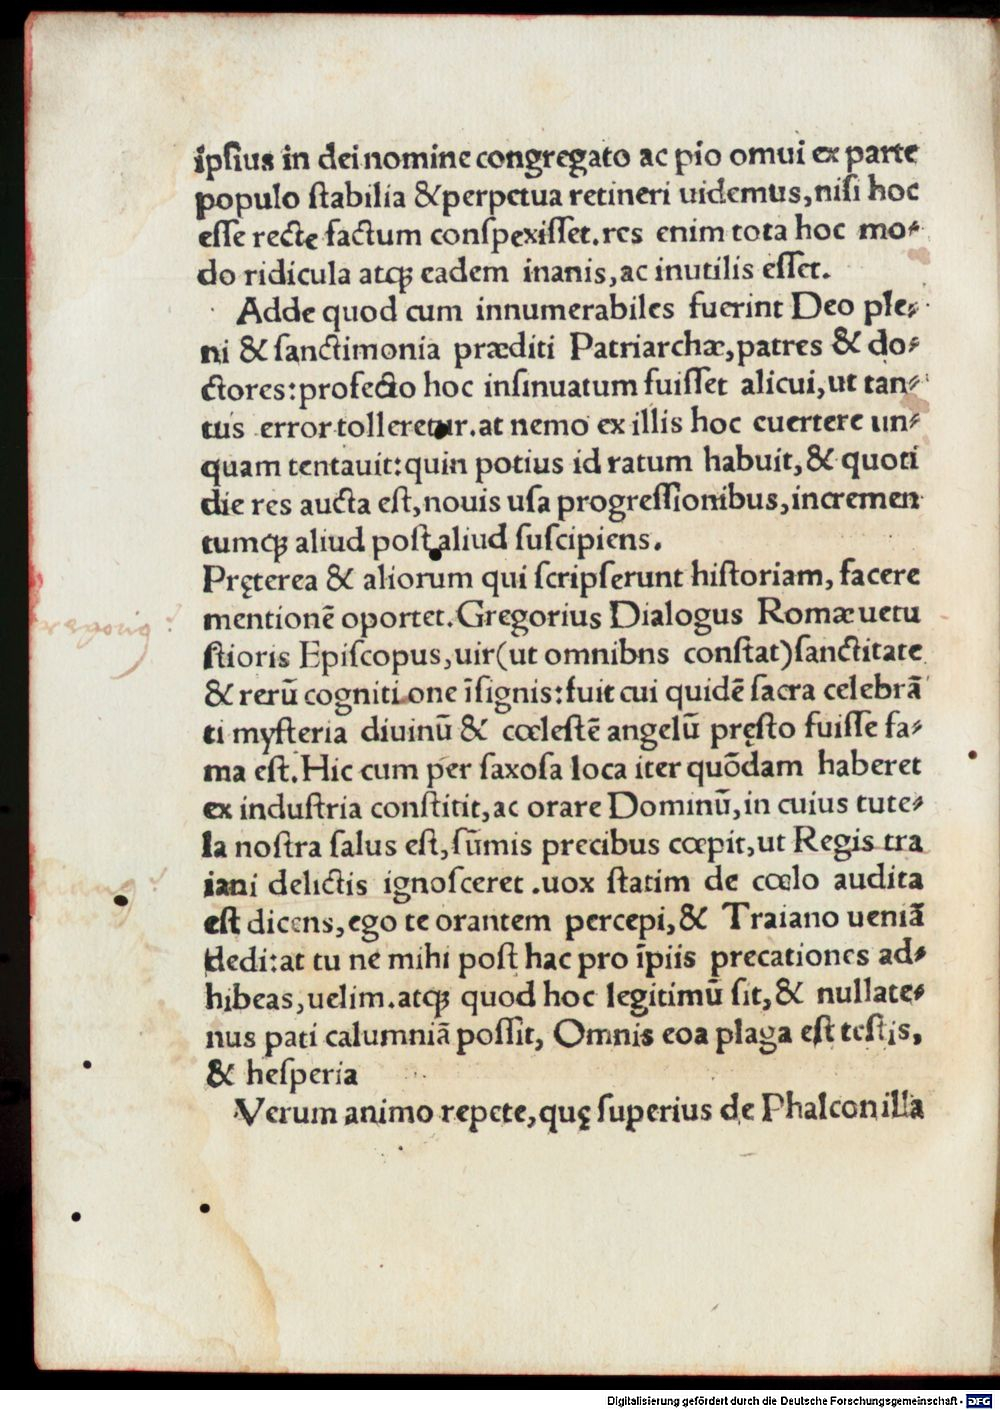 ipſius in dei nomine congregato ac pio omui ex parte
populo ſtabilia & perpetua retineri uidemus, niſi hoc
eſſe recte factum conſpexiſſet. res enim tota hoc mo⸗
do ridicula atqꝫ eadem inanis, ac inutilis eſſet.
Adde quod cum innumerabiles fuerint Deo ple⸗
ni & ſanctimonia præditi Patriarchæ, patres & do⸗
ctores: profecto hoc inſinuatum fuiſſet alicui, ut tan⸗
tus error tolleretur. at nemo ex illis hoc euertere un⸗
quam tentauit: quin potius id ratum habuit, & quoti
die res aucta eſt, nouis uſa progreſſionibus, incremen
tumqꝫ aliud poſt aliud ſuſcipiens.
Pręterea & aliorum qui ſcripſerunt hiſtoriam, facere
mentionē oportet. Gregorius Dialogus Romæ uetu
ſtioris Epiſcopus, uir (ut omnibns conſtat) ſanctitate
& rerū cognitione īſignis: fuit cui quidē ſacra celebrā
ti myſteria diuinū & cœleſtē angelū pręſto fuiſſe fa⸗
ma eſt. Hic cum per ſaxoſa loca iter quōdam haberet
ex induſtria conſtitit, ac orare Dominū, in cuius tute⸗
la noſtra ſalus eſt, ſūmis precibus cœpit, ut Regis tra
iani delictis ignoſceret .uox ſtatim de cœlo audita
eſt dicens, ego te orantem percepi, & Traiano ueniā
dedi: at tu ne mihi poſt hac pro īpiis precationes ad⸗
hibeas, uelim. atqꝫ quod hoc legitimū ſit, & nullate⸗
nus pati calumniā poſſit, Omnis eoa plaga eſt teſtis,
& heſperia
Verum animo repete, quę ſuperius de Phalconilla
Digitalisierung gefördert durch die Deutsche Forschungsgemeinschaft - DFG